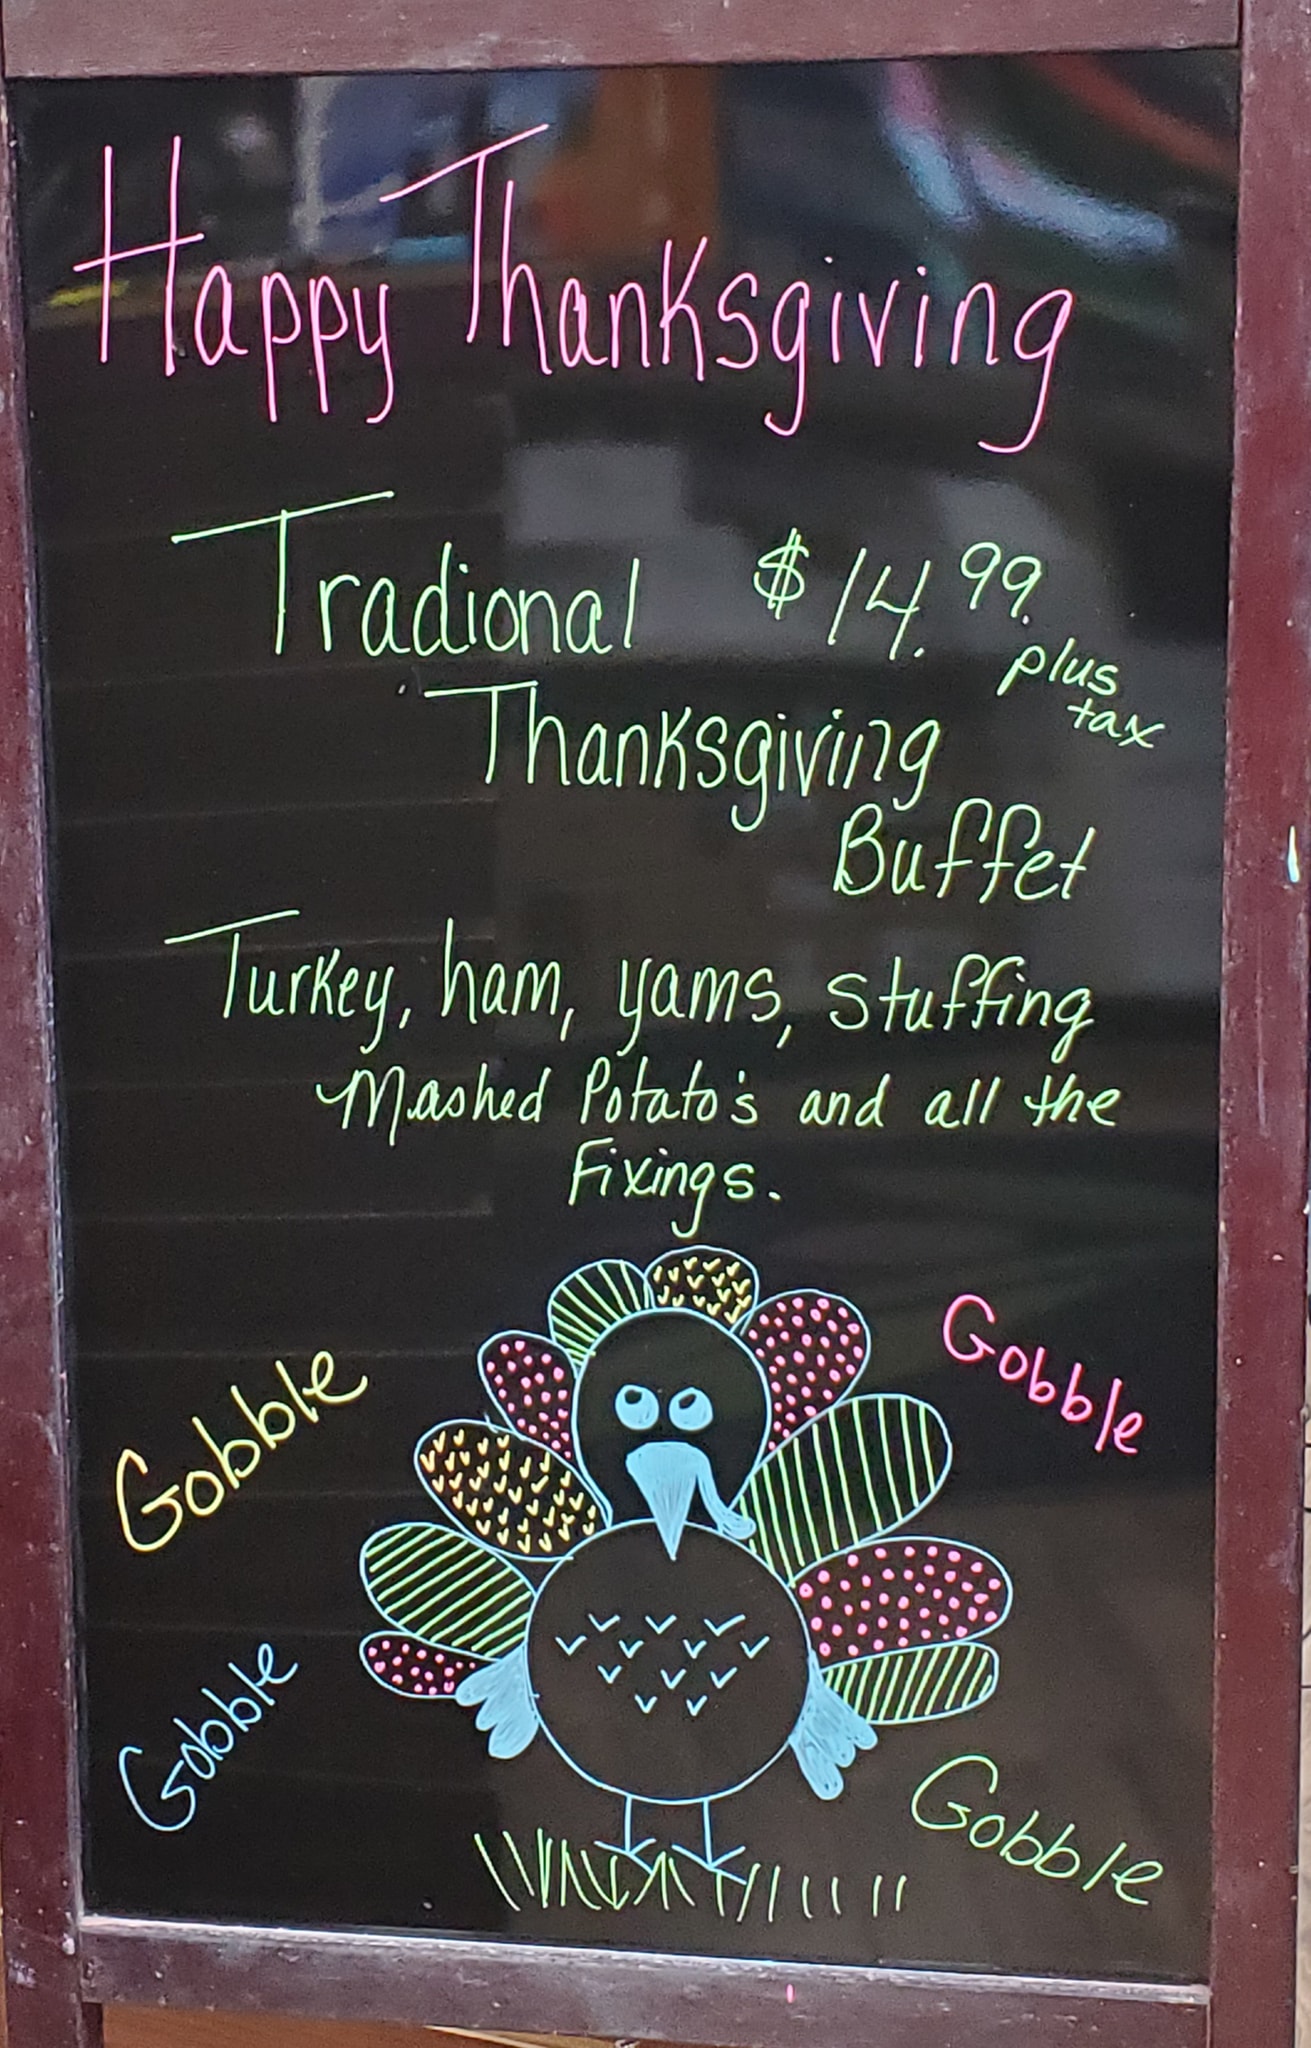 Happy Thanksgiving
Tradional $14.99.
plus
tax
Thanksgiving
Buffet
Turkey, ham, yams, stuffing
Mashed Potato's and all the
Fixings.
Gobble
Gobble
Gobble
Gobble